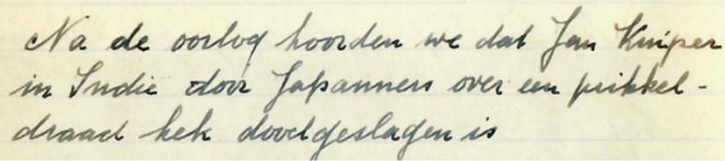 Na de oorlog hoorden we dat Jan Kuiper
in Indië door Japanners over een prikkel-
draad hek doodgeslagen is